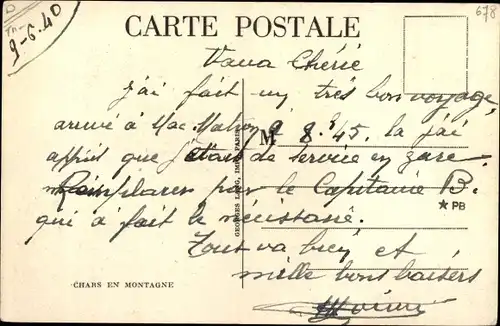 9-6.40
678
CARTE POSTALE
Chérie
j'ai fait un très bon voyage,
arrivé à Mac-Mahon 8 45. la j'ai
appris que j'étais de service en gare.
par le Capitaine B.
qui à fait le nécessaire.
Tout va bien et
mille bons baisers
M
GEORGES LANG, IMP., PARIS
★ PB
CHARS EN MONTAGNE